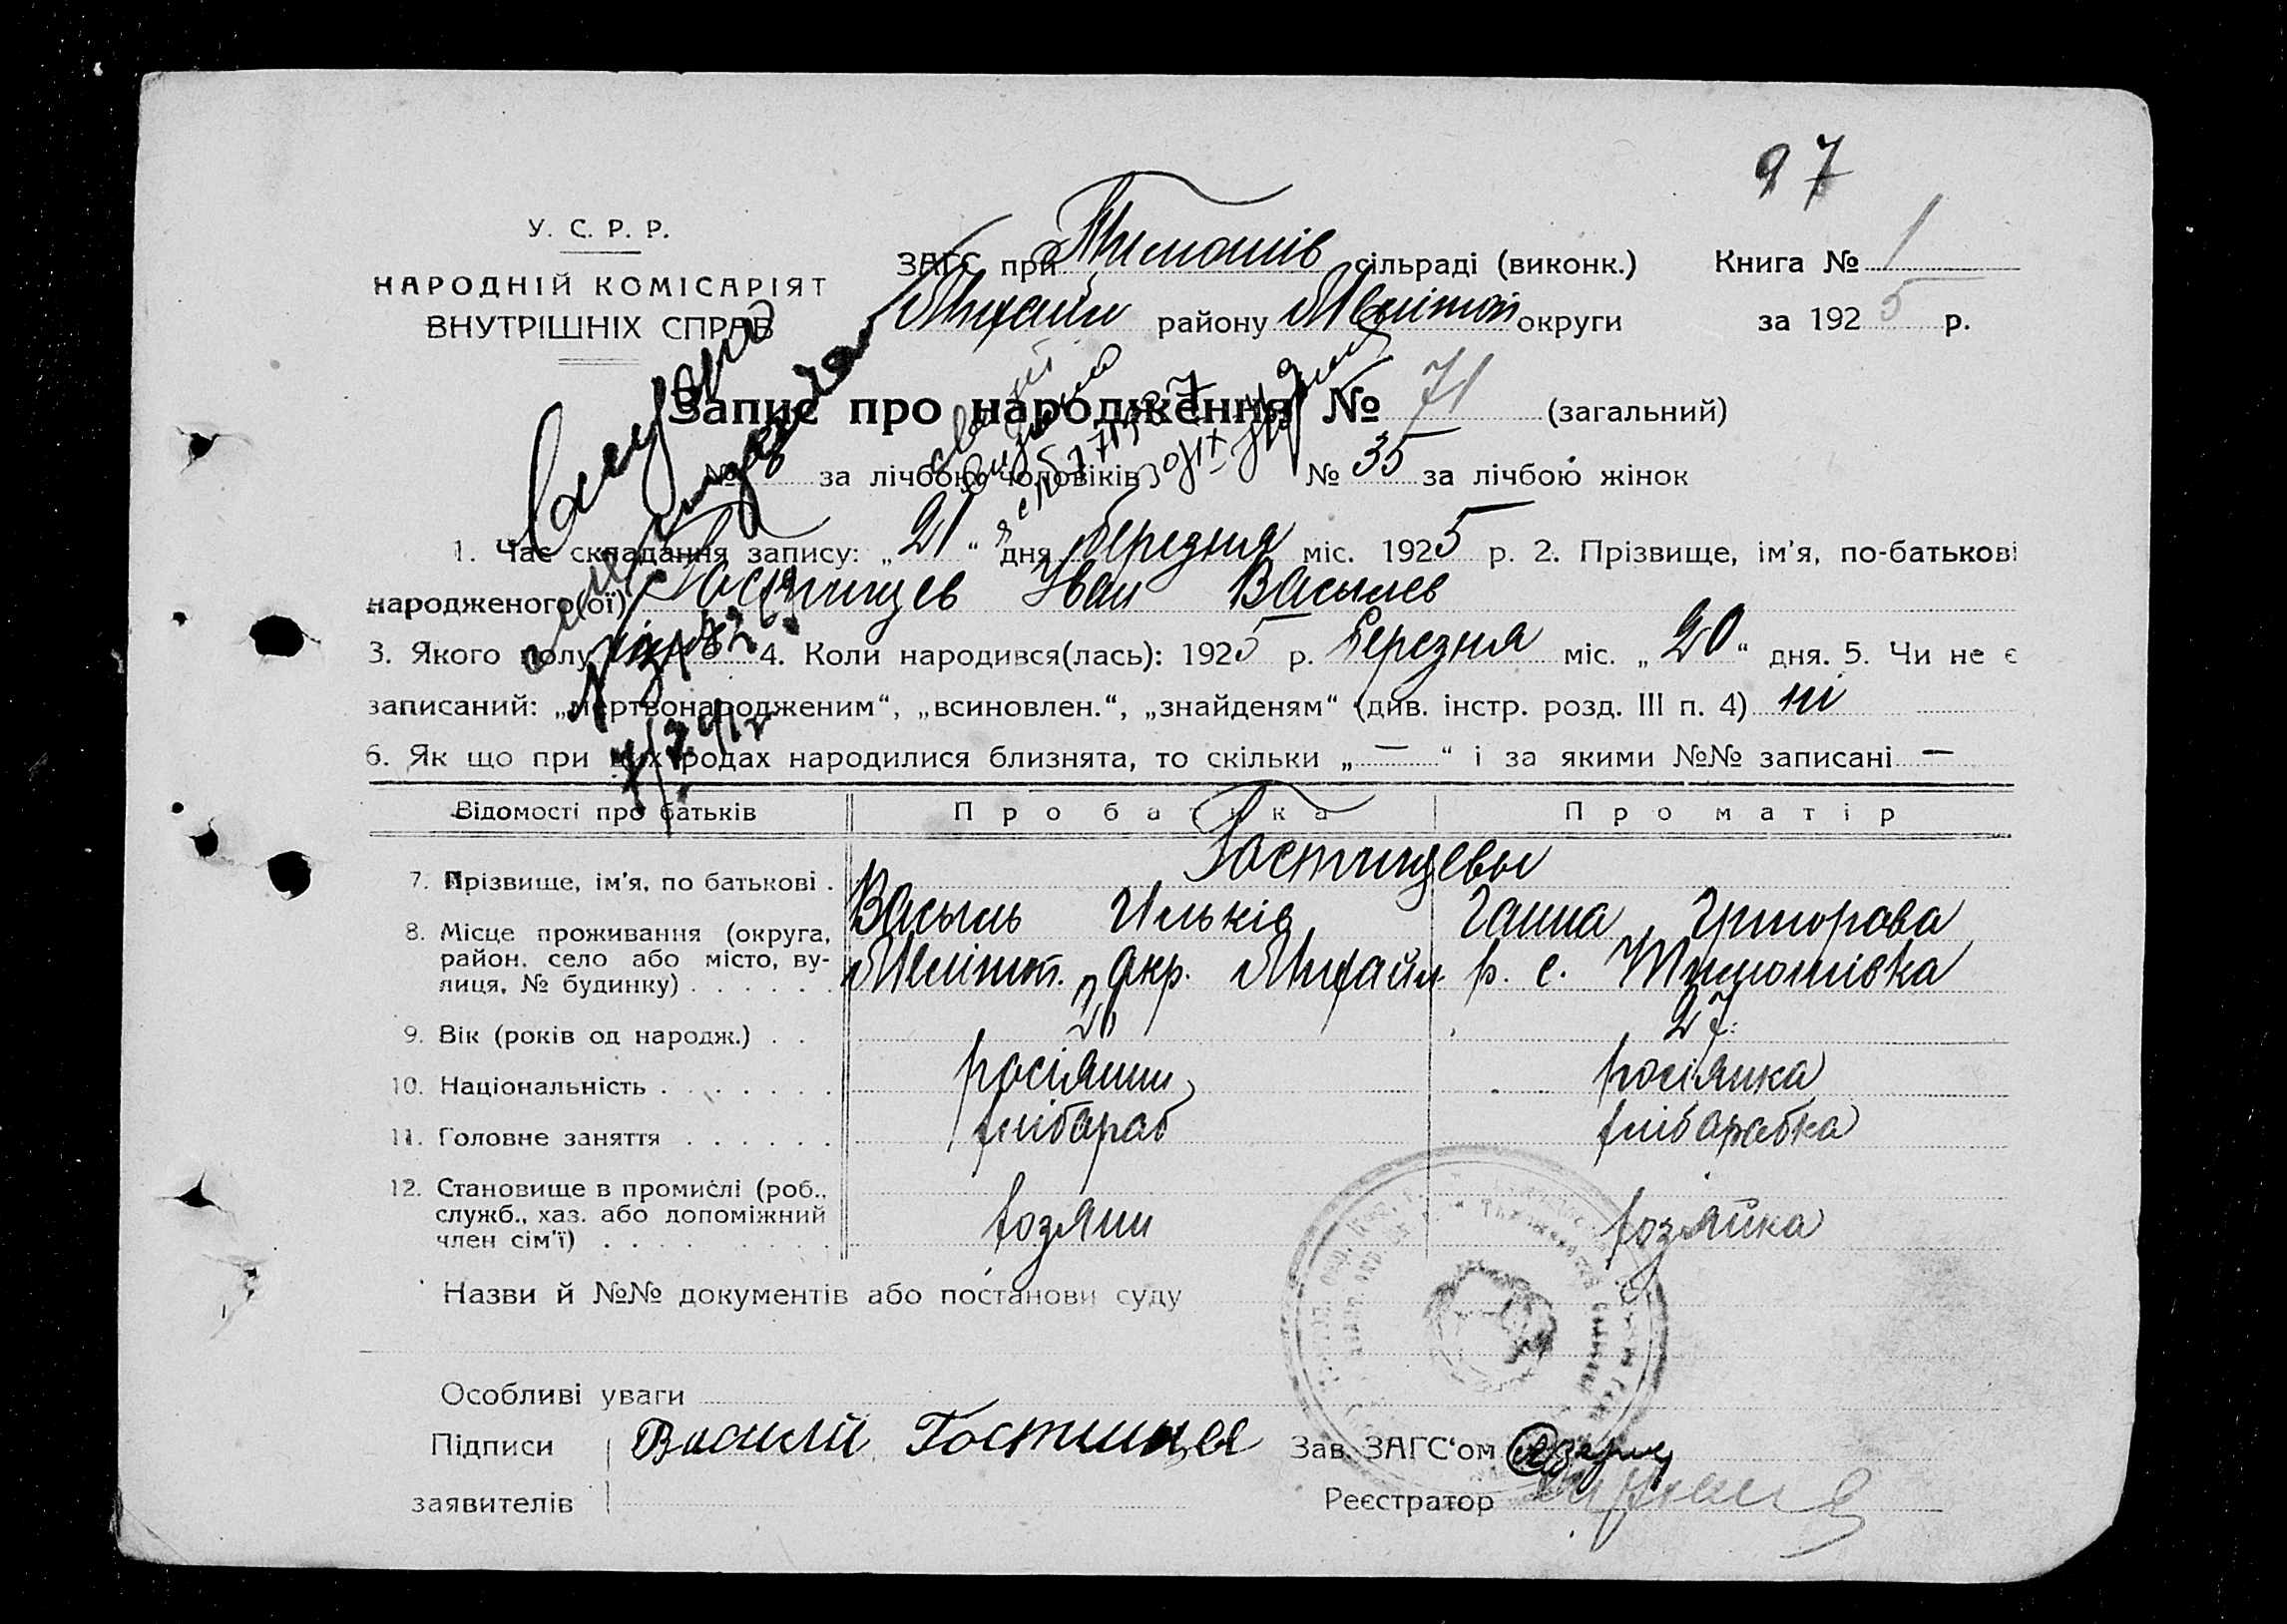 97
У. С. Р. Р.
НАРОДНІЙ КОМІСАРІЯТ
ВНУТРІШНІХ СПРАВ
ЗАГС при Тимошів сільраді (виконк.)
Михайл району Мелітоп округи
Книга № 1
за 1925 р.
Запис про народження № 71 (загальний)
№ за лічбою чоловіків № 35 за лічбою жінок
1. Час складання запису: „21“ дня березня міс. 1925 р. 2. Прізвище, ім'я, по-батькові
народженого(ої) Гостищев Іван Васылев
3. Якого полу 4. Коли народився(лась): 1925 р. березня міс. „20“ дня. 5. Чи не є
записаний: „мертвонародженим“, „всиновлен.“, „знайденям“ (див. інстр. розд. III п. 4) ні
6. Як що при цих родах народилися близнята, то скільки „—“ і за якими №№ записані —
Відомості про батьків Про батька Про матір
Гостищевы
7. Прізвище, ім'я, по батькові . Васыль Ильків Ганна Григорова
8. Місце проживання (округа, район. село або місто, вулиця, № будинку) . . . . . . Меліт. Окр. Михайл р. с. Тимошівка
9. Вік (років од народж.) . . 26 27
10. Національність . . . . . . . росіянин росіянка
11. Головне заняття . . . . . . хлібораб хліборабка
12. Становище в промислі (роб., служб., хаз. або допоміжний член сім'ї) . . . . хозяин хозяйка
Назви й №№ документів або постанови суду
Особливі уваги
Підписи Василй Гостищев Зав. ЗАГС'ом
заявителів Реєстратор